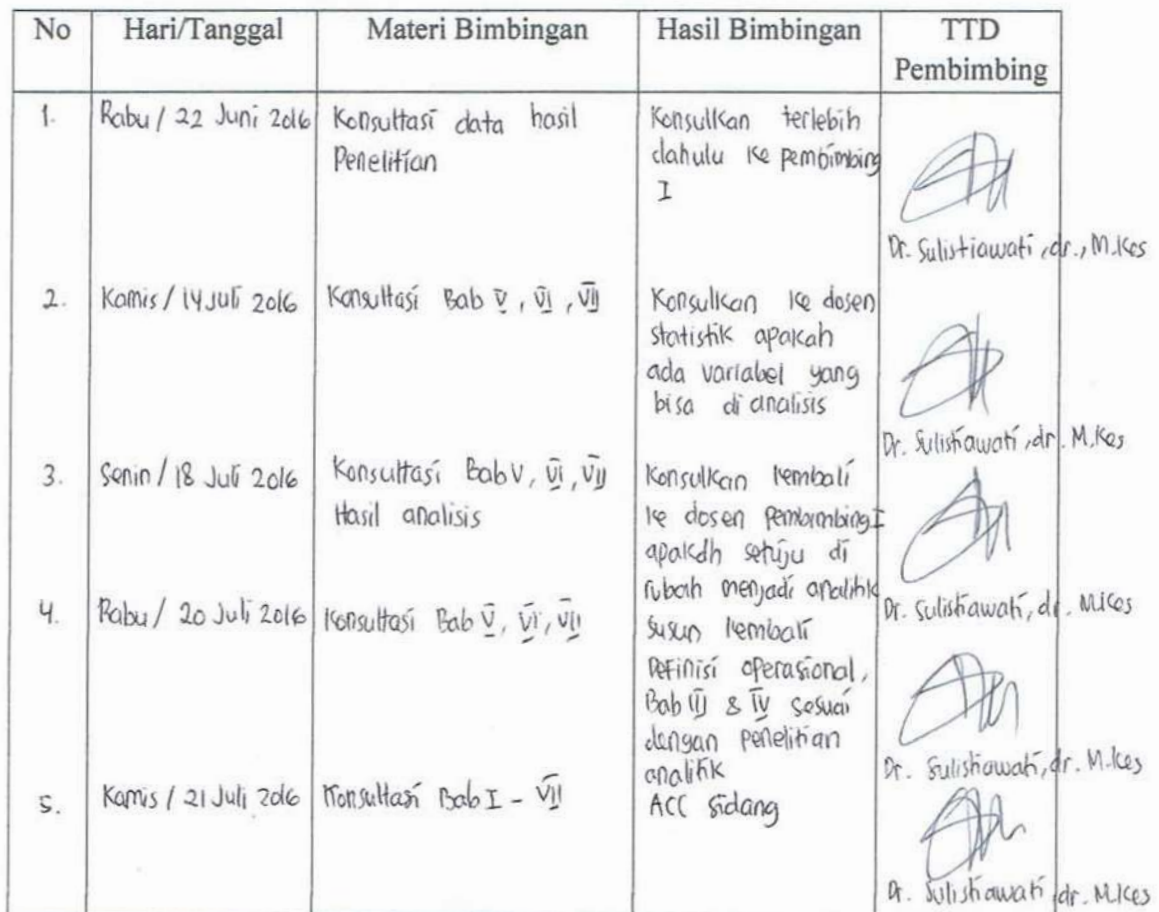 No Hari/Tanggal Materi Bimbingan Hasil Bimbingan TTD
Pembimbing
1. Rabu / 22 Juni 2016 Konsultasi data hasil Konsulkan terlebih
Penelitian dahulu ke pembimbing
I
Dr. Sulistiawati, dr., M.Kes
2. Kamis / 14 Juli 2016 Konsultasi Bab V, VI, VII Konsulkan ke dosen
statistik apakah
ada variabel yang
bisa di analisis
Dr. Sulistiawati, dr. M.Kes
3. Senin / 18 Juli 2016 Konsultasi Bab V, VI, VII Konsulkan kembali
Hasil analisis ke dosen pembimbing I
apakah setuju di
rubah menjadi analitik
Dr. Sulistiawati, dr. M.Kes
4. Rabu / 20 Juli 2016 Konsultasi Bab V, VI, VII susun kembali
Definisi operasional,
Bab III & IV sesuai
dengan penelitian
analitik
Dr. Sulistiawati, dr. M.Kes
5. Kamis / 21 Juli 2016 Konsultasi Bab I - VII ACC sidang
Dr. Sulistiawati dr. M.Kes